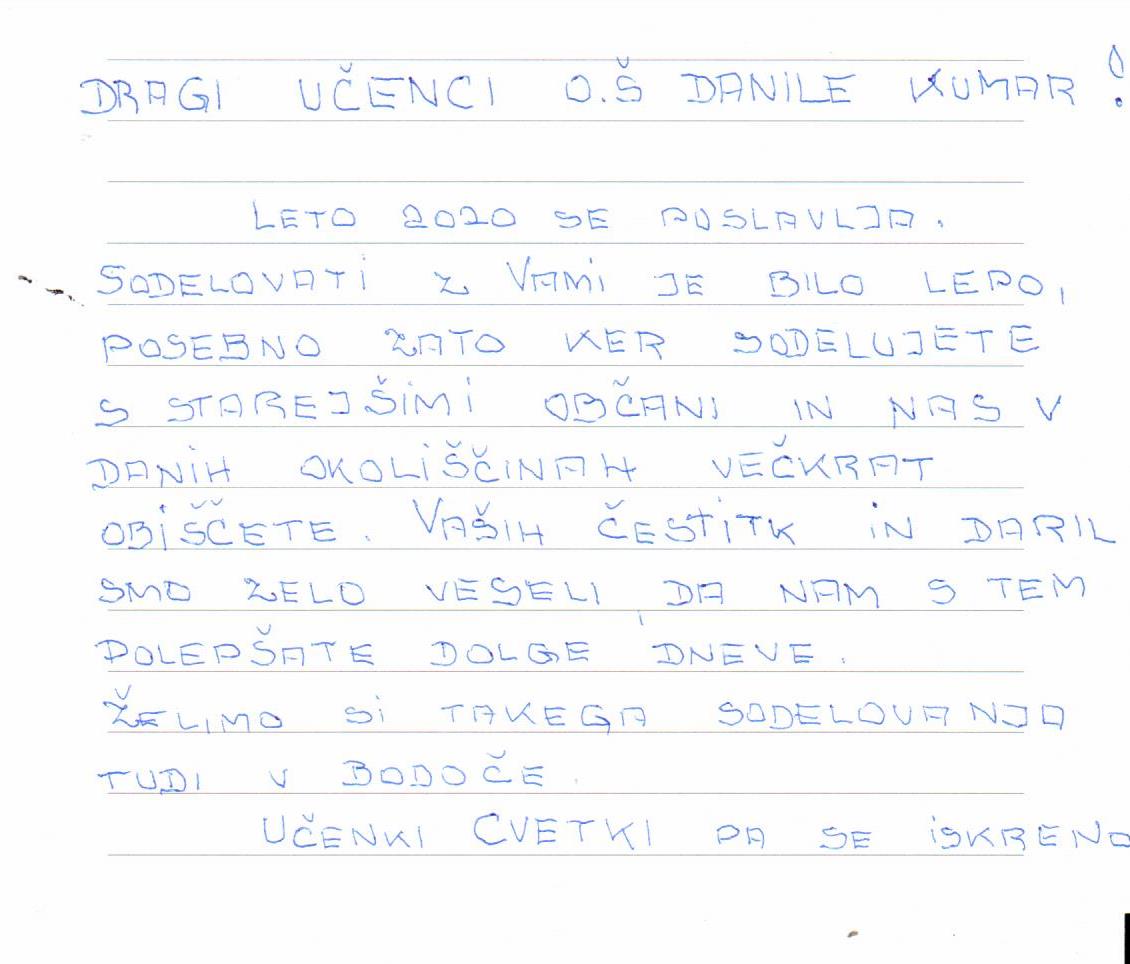 DRAGI UČENCI O.Š DANILE KUMAR!
LETO 2020 SE POSLAVLJA.
SODELOVATI Z VAMI JE BILO LEPO,
POSEBNO ZATO KER SODELUJETE
S STAREJŠIMI OBČANI IN NAS V
DANIH OKOLIŠČINAH VEČKRAT
OBIŠČETE. VAŠIH ČESTITK IN DARIL
SMO ZELO VESELI DA NAM S TEM
POLEPŠATE DOLGE DNEVE.
ŽELIMO SI TAKEGA SODELOVANJA
TUDI V BODOČE.
UČENKI CVETKI PA SE ISKRENO